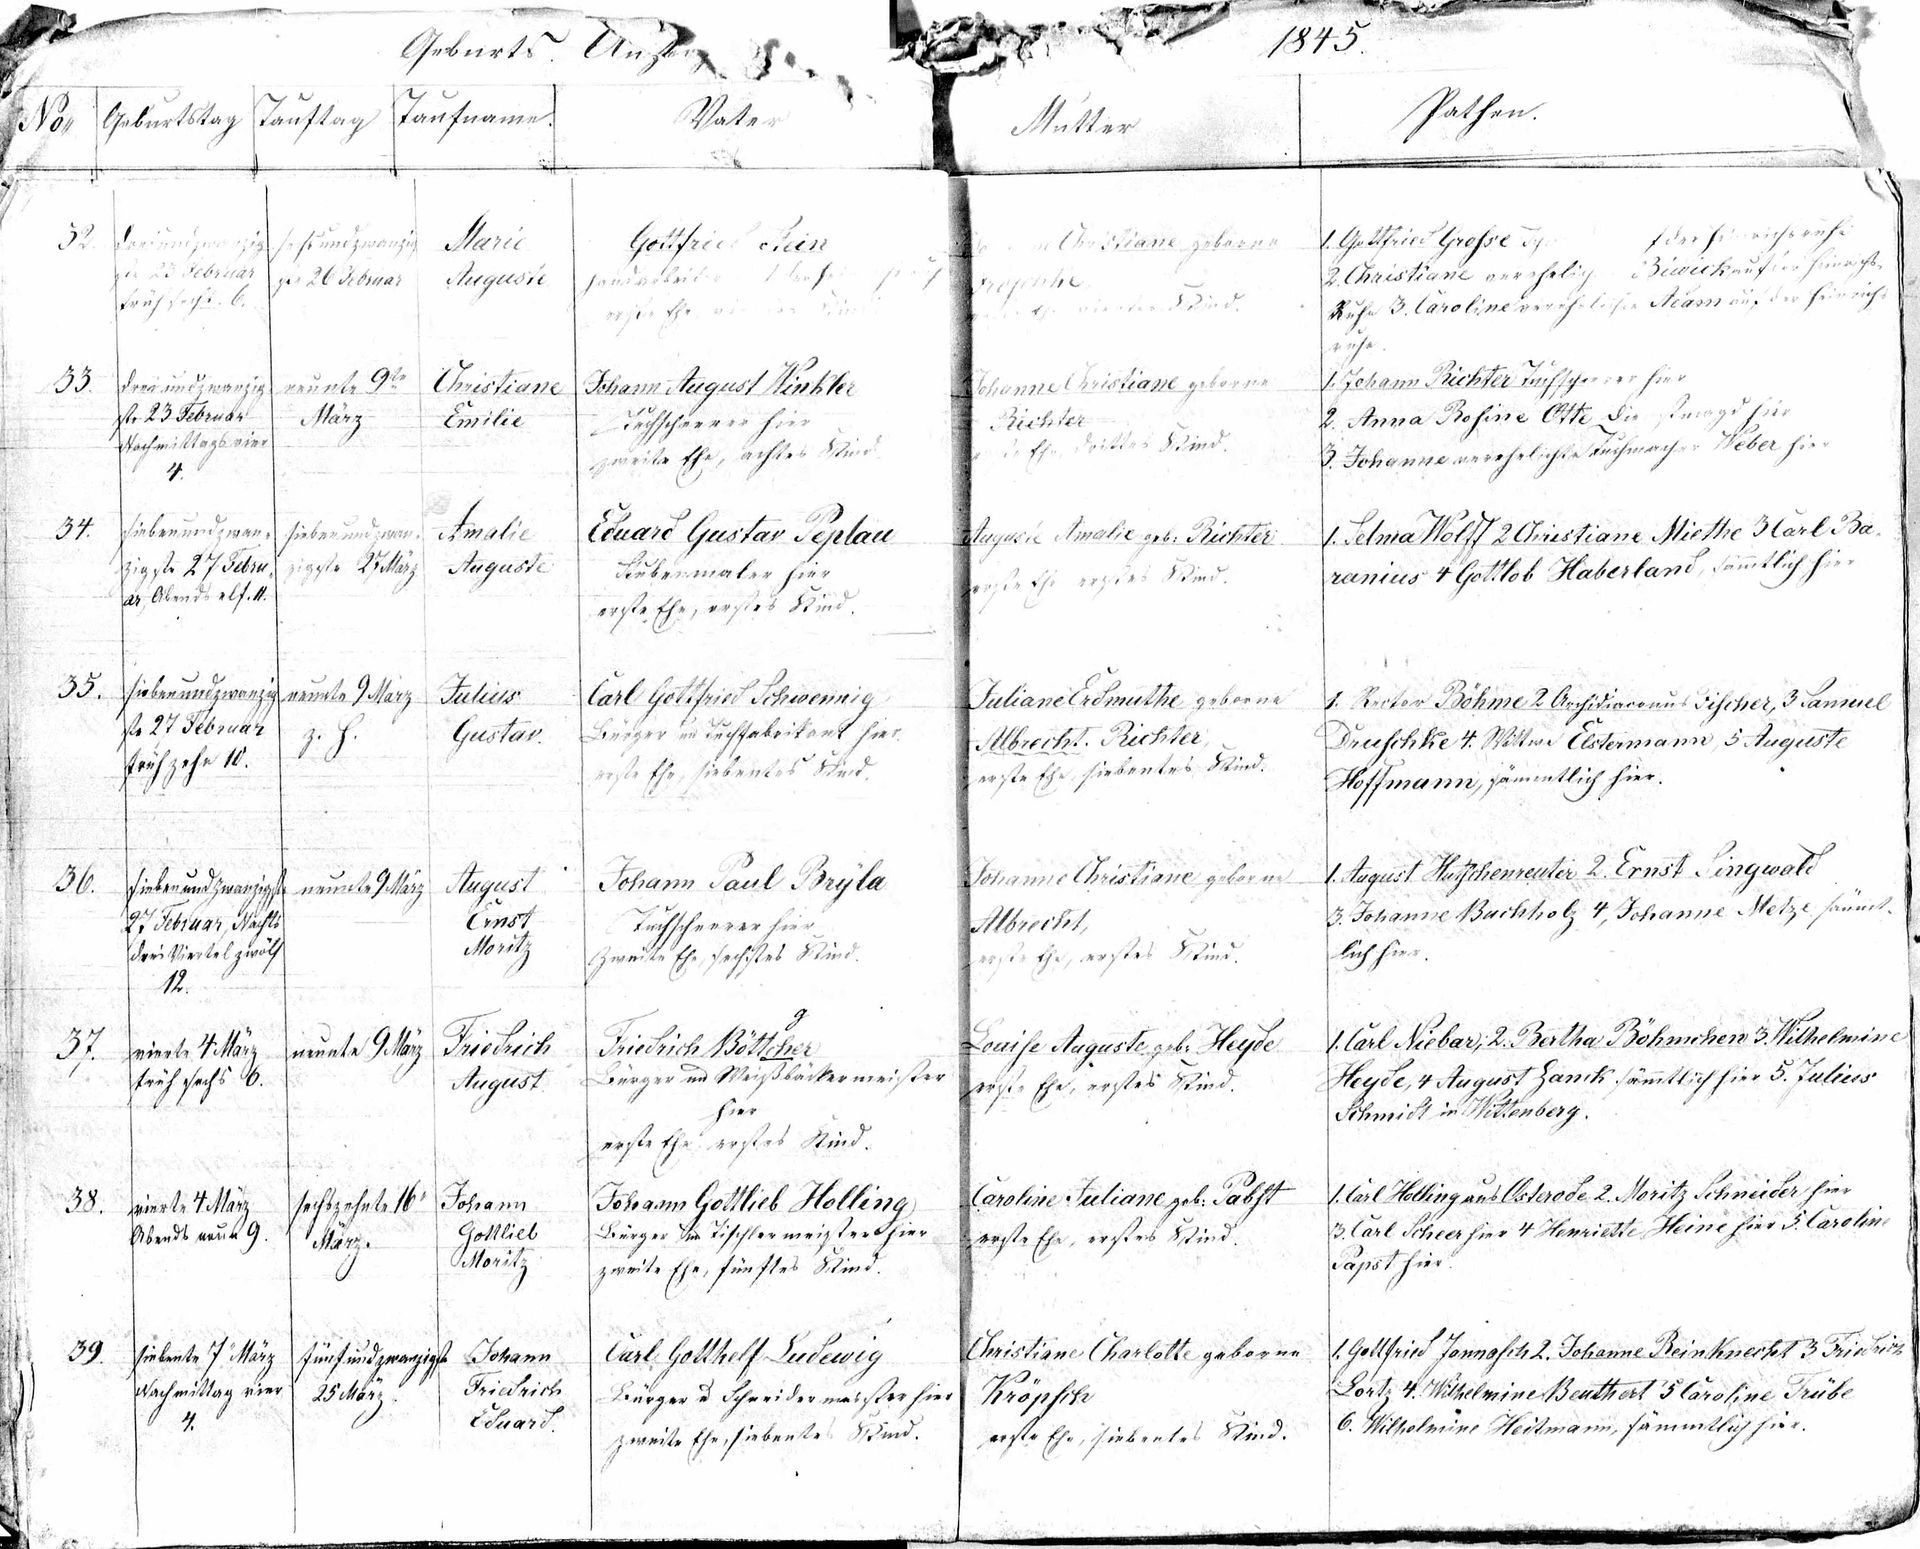 Geburts
1845.
No. Geburtstag Tauftag Taufname. Vater Mutter Pathen.
32. dreiundzwanzig- sechsundzwanzig- Marie Gottfried Stein Christiane geborne 1. Gottfried Grosse
ste 23 Februar ste 26 Februar Auguste 2. Christiane
früh sechs 6. erste Ehe Kind. Ruhe 3. Caroline verehelichte Adam auf der Heinrichs
ruhe.
33. dreiundzwanzig- neunte 9te Christiane Johann August Winkler Johanne Christiane geborne 1. Johann Richter Tuchscheerer hier
ste 23 Februar März Emilie Tuchscheerer hier Richter 2. Anna Rosine Otte Dienstmagd hier
Nachmittags vier zweite Ehe, achtes Kind. Ehe, drittes Kind. 3. Johanne verehelichte Tuchmacher Weber hier
4.
34. siebenundzwan- siebenundzwan- Amalie Eduard Gustav Peplau Auguste Amalie geb. Richter 1. Selma Wolff 2 Christiane Miethe 3 Carl Ba-
zigste 27 Febru- zigste 27 März Auguste Stubenmaler hier erste Ehe erstes Kind. ranius 4 Gottlob Haberland, sämmtlich hier
ar, Abends elf 11. erste Ehe, erstes Kind.
35. siebenundzwanzig neunte 9 März Julius Carl Gottfried Schwennig Juliane Erdmuthe geborne 1. Rector Böhme 2 Archidiaconus Fischer, 3 Samuel
ste 27 Februar z. H. Gustav. Bürger und Tuchfabrikant hier. Albrecht. Richter, Druschke 4. Wittwe Elstermann, 5 Auguste
früh zehn 10. erste Ehe, siebentes Kind. erste Ehe, siebentes Kind. Hoffmann, sämmtlich hier.
36. siebenundzwanzigste neunte 9 März August Johann Paul Bryla Johanne Christiane geborne 1. August Hutschenreuter 2. Ernst Singwald
27 Februar, Nachts Ernst Tuchscheerer hier Albrecht, 3. Johanne Buchholz 4, Johanne Metze sämmt-
drei Viertel zwölf Moritz zweite Ehe, sechstes Kind. erste Ehe, erstes Kind. lich hier.
12.
37. vierte 4 März neunte 9 März Friedrich Friedrich Böttcher g Louise Auguste geb. Heyde 1. Carl Niebar, 2. Bertha Böhmchen 3. Wilhelmine
früh sechs 6. August Bürger und Weißbäckermeister erste Ehe, erstes Kind. Heyde, 4 August Zanck sämmtlich hier 5. Julius
hier Schmidt in Wittenberg.
erste Ehe erstes Kind.
38. vierte 4 März sechszehnte 16 Johann Johann Gottlieb Holling Caroline Juliane geb. Pabst 1. Carl Holling aus Osterode 2. Moritz Schneider hier
Abends neun 9. März. Gottlieb Bürger und Tischlermeister hier erste Ehe, erstes Kind. 3. Carl Scheer hier 4 Henriette Heine hier 5. Caroline
Moritz zweite Ehe, fünftes Kind. Papst hier.
39. siebente 7 März fünfundzwanzigste Johann Carl Gotthelf Ludewig Christiane Charlotte geborne 1. Gottfried Jonnasch 2. Johanne Reinknecht 3 Friedrich
Nachmittag vier 25 März. Friedrich Bürger u Schneidermeister hier Kröpsch Lortz 4. Wilhelmine Beuthert 5 Caroline Trübe
4. Eduard. zweite Ehe, siebentes Kind. erste Ehe, siebentes Kind. 6. Wilhelmine Heitmann, sämmtlich hier.